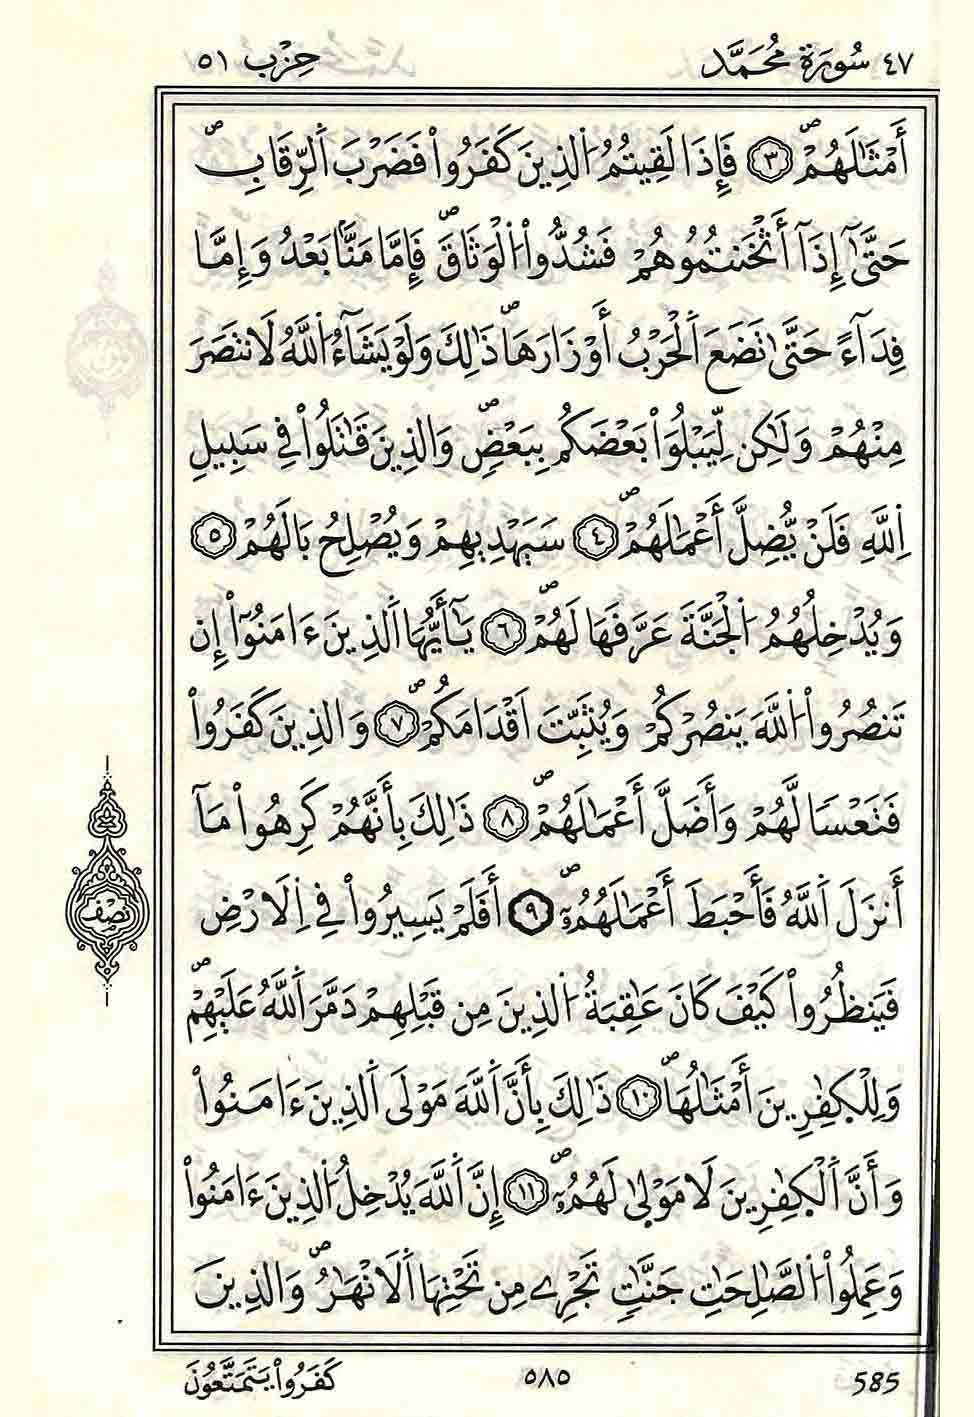 ٤٧ سُورَةُ مُحَمَّد حِزْب ٥١
أَمْثَٰلَهُمْۖ ٣ فَإِذَا لَقِيتُمُ اُ۬لذِينَ كَفَرُواْ فَضَرْبَ اَ۬لرِّقَابِۖ
حَتَّىٰٓ إِذَآ أَثْخَنتُمُوهُمْ فَشُدُّواْ اُ۬لْوَثَاقَۖ فَإِمَّا مَنّاَۢ بَعْدُ وَإِمَّا
فِدَآءً حَتَّىٰ تَضَعَ اَ۬لْحَرْبُ أَوْزَارَهَاۖ ذَٰلِكَ وَلَوْ يَشَآءُ اُ۬للَّهُ لَانتَصَرَ
مِنْهُمْ وَلَٰكِن لِّيَبْلُوَاْ بَعْضَكُم بِبَعْضٖۖ وَالذِينَ قَٰتَلُواْ فِے سَبِيلِ
اِ۬للَّهِ فَلَنْ يُّضِلَّ أَعْمَٰلَهُمْۖ ٤ سَيَهْدِيهِمْ وَيُصْلِحُ بَالَهُمْ ٥
وَيُدْخِلُهُمُ اُ۬لْجَنَّةَ عَرَّفَهَا لَهُمْۖ ٦ يَٰٓأَيُّهَا اَ۬لذِينَ ءَامَنُوٓاْ إِن
تَنصُرُواْ اُ۬للَّهَ يَنصُرْكُمْ وَيُثَبِّتَ اَقْدَامَكُمْۖ ٧ وَالذِينَ كَفَرُواْ
فَتَعْساٗ لَّهُمْ وَأَضَلَّ أَعْمَٰلَهُمْۖ ٨ ذَٰلِكَ بِأَنَّهُمْ كَرِهُواْ مَآ
أَنزَلَ اَ۬للَّهُ فَأَحْبَطَ أَعْمَٰلَهُمُۥٓۖ ٩ أَفَلَمْ يَسِيرُواْ فِے اِ۬لَارْضِ
فَيَنظُرُواْ كَيْفَ كَانَ عَٰقِبَةُ اُ۬لذِينَ مِن قَبْلِهِمْ دَمَّرَ اَ۬للَّهُ عَلَيْهِمْۖ
وَلِلْكٰ۪فِرِينَ أَمْثَٰلُهَاۖ ١٠ ذَٰلِكَ بِأَنَّ اَ۬للَّهَ مَوْلَى اَ۬لذِينَ ءَامَنُواْ
وَأَنَّ اَ۬لْكٰ۪فِرِينَ لَا مَوْل۪ىٰ لَهُمُۥٓۖ ١١ إِنَّ اَ۬للَّهَ يُدْخِلُ اُ۬لذِينَ ءَامَنُواْ
وَعَمِلُواْ اُ۬لصَّٰلِحَٰتِ جَنَّٰتٖ تَجْرِے مِن تَحْتِهَا اَ۬لَانْهَٰرُۖ وَالذِينَ
نِصْف
585 ٥٨٥ كَفَرُواْ يَتَمَتَّعُونَ